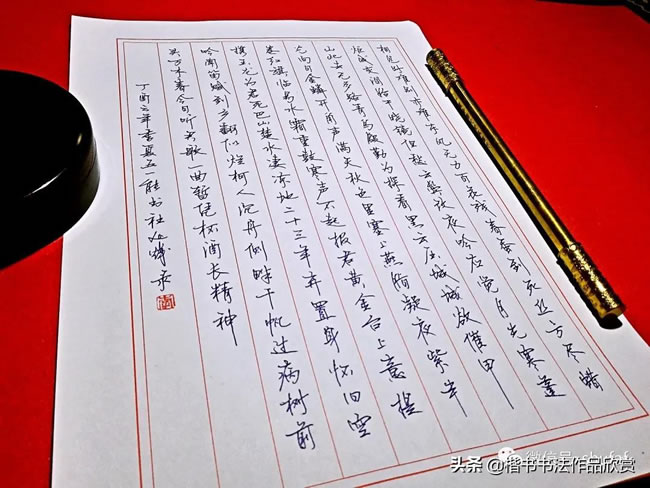 相见时难别亦难东风无力百花残春蚕到死丝方尽蜡
炬成灰泪始干晓镜但愁云鬓改夜吟应觉月光寒蓬
山此去无多路青鸟殷勤为探看黑云压城城欲催甲
光向日金鳞开角声满天秋色里塞上燕脂凝夜紫半
卷红旗临易水霜重鼓寒声不起报君黄金台上意提
携玉龙为君死巴山楚水凄凉地二十三年弃置身怀旧空
吟闻笛赋到乡翻似烂柯人沉舟侧畔千帆过病树前
头万木春今日听君歌一曲暂凭杯酒长精神
丁酉年五一能书社录
微信号
头条 @楷书书法作品欣赏